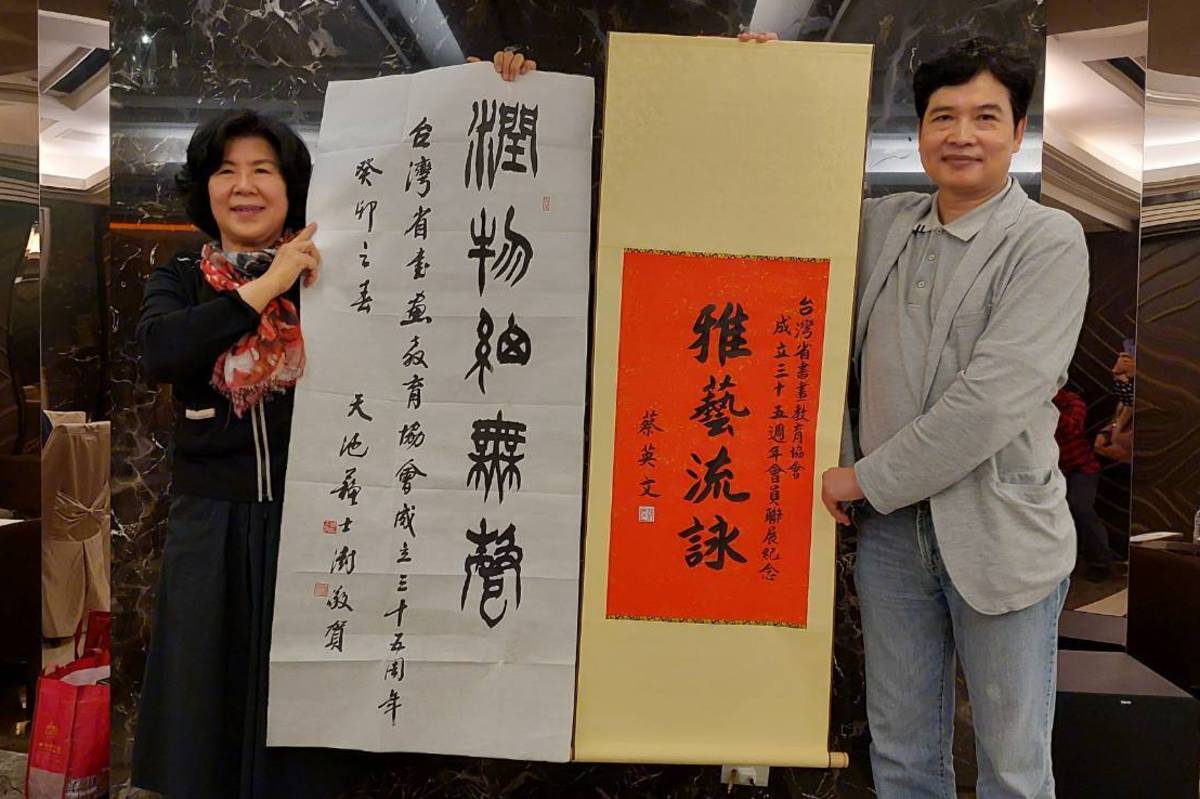 潤物細無聲
台灣省書畫教育協會成立三十五周年
癸卯之春 天池 士澍敬賀
台灣省書畫教育協會
成立三十五週年會員聯展紀念
雅藝流詠
蔡英文